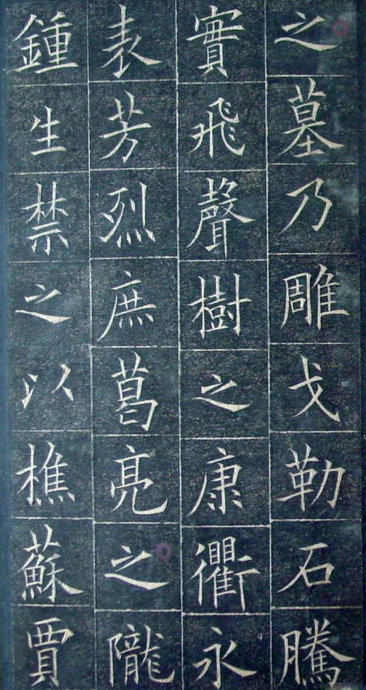 之墓乃雕戈勒石騰
實飛聲樹之康衢永
表芳烈庶葛亮之隴
鍾生禁之以樵蘇賈